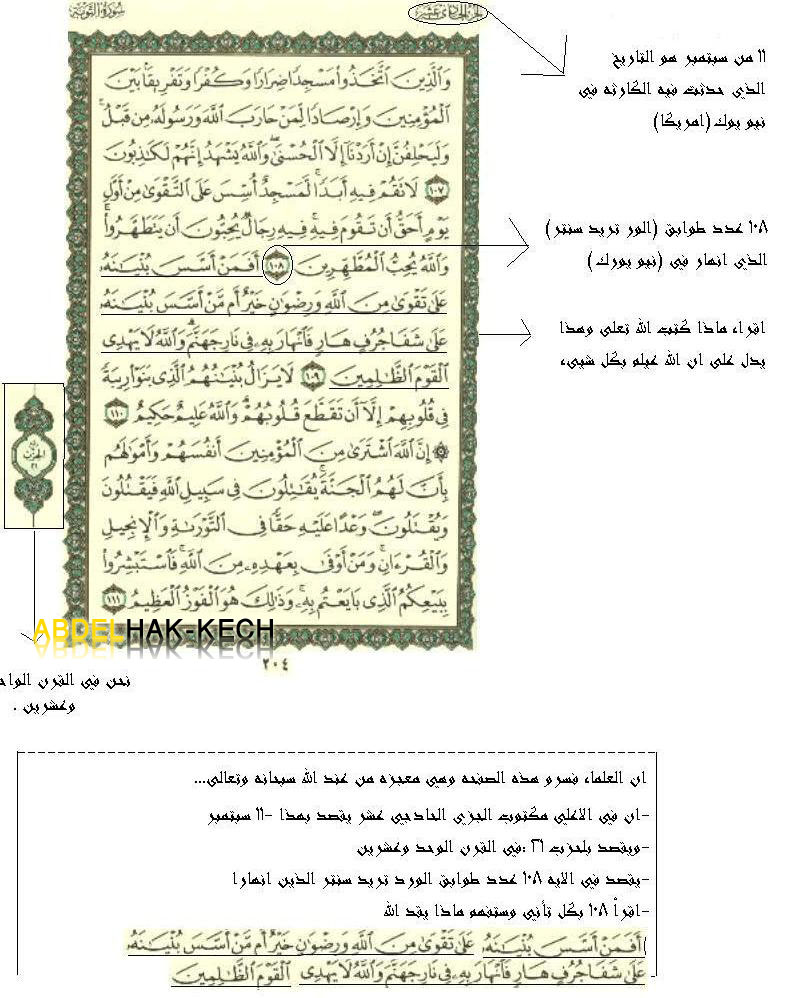 الجزء الحادي عشر
سورة التوبة
وَالَّذِينَ اتَّخَذُوا مَسْجِدًا ضِرَارًا وَكُفْرًا وَتَفْرِيقًا بَيْنَ
الْمُؤْمِنِينَ وَإِرْصَادًا لِّمَنْ حَارَبَ اللَّهَ وَرَسُولَهُ مِن قَبْلُ
وَلَيَحْلِفُنَّ إِنْ أَرَدْنَا إِلَّا الْحُسْنَىٰ وَاللَّهُ يَشْهَدُ إِنَّهُمْ لَكَاذِبُونَ
١٠٧ لَا تَقُمْ فِيهِ أَبَدًا لَّمَسْجِدٌ أُسِّسَ عَلَى التَّقْوَىٰ مِنْ أَوَّلِ
يَوْمٍ أَحَقُّ أَن تَقُومَ فِيهِ فِيهِ رِجَالٌ يُحِبُّونَ أَن يَتَطَهَّرُوا
وَاللَّهُ يُحِبُّ الْمُطَّهِّرِينَ ١٠٨ أَفَمَنْ أَسَّسَ بُنْيَانَهُ
عَلَىٰ تَقْوَىٰ مِنَ اللَّهِ وَرِضْوَانٍ خَيْرٌ أَم مَّنْ أَسَّسَ بُنْيَانَهُ
عَلَىٰ شَفَا جُرُفٍ هَارٍ فَانْهَارَ بِهِ فِي نَارِ جَهَنَّمَ وَاللَّهُ لَا يَهْدِي
الْقَوْمَ الظَّالِمِينَ ١٠٩ لَا يَزَالُ بُنْيَانُهُمُ الَّذِي بَنَوْا رِيبَةً
فِي قُلُوبِهِمْ إِلَّا أَن تَقَطَّعَ قُلُوبُهُمْ وَاللَّهُ عَلِيمٌ حَكِيمٌ ١١٠
۞ إِنَّ اللَّهَ اشْتَرَىٰ مِنَ الْمُؤْمِنِينَ أَنفُسَهُمْ وَأَمْوَالَهُم
بِأَنَّ لَهُمُ الْجَنَّةَ يُقَاتِلُونَ فِي سَبِيلِ اللَّهِ فَيَقْتُلُونَ
وَيُقْتَلُونَ وَعْدًا عَلَيْهِ حَقًّا فِي التَّوْرَاةِ وَالْإِنجِيلِ
وَالْقُرْآنِ وَمَنْ أَوْفَىٰ بِعَهْدِهِ مِنَ اللَّهِ فَاسْتَبْشِرُوا
بِبَيْعِكُمُ الَّذِي بَايَعْتُم بِهِ وَذَٰلِكَ هُوَ الْفَوْزُ الْعَظِيمُ ١١١
٢٠٤
ABDELHAK-KECH
الحزب
٢١
١١ من سبتمبر هو التاريخ
الذي حدثت فيه الكارثه في
نيو يوك (امريكا)
١٠٨ عدد طوابق (الور تريد سنتر)
الذي انهار في (نيو يورك)
اقراء ماذا كتب الله تعلى وهذا
يدل على ان الله عيلم بكل شيىء
نحن في القرن الواح
وعشرين .
ان العلماء فسرو هذه الصفحه وهي معجزه من عند الله سبحانه وتعالى...
-ان في الاعلى مكتوب الجزي الحادجي عشر يقصد بهذا -١١ سبتمبر
-ويقصد بلحزب ٢١ :في القرن الوحد وعشرين
-يقصد في الايه ١٠٨ عدد طوابق الورد تريد سنتر الذين انهارا
-اقرأ ١٠٨ بكل تأني وستفهمو ماذا يقد الله
أَفَمَنْ أَسَّسَ بُنْيَانَهُ عَلَىٰ تَقْوَىٰ مِنَ اللَّهِ وَرِضْوَانٍ خَيْرٌ أَم مَّنْ أَسَّسَ بُنْيَانَهُ
عَلَىٰ شَفَا جُرُفٍ هَارٍ فَانْهَارَ بِهِ فِي نَارِ جَهَنَّمَ وَاللَّهُ لَا يَهْدِي الْقَوْمَ الظَّالِمِينَ